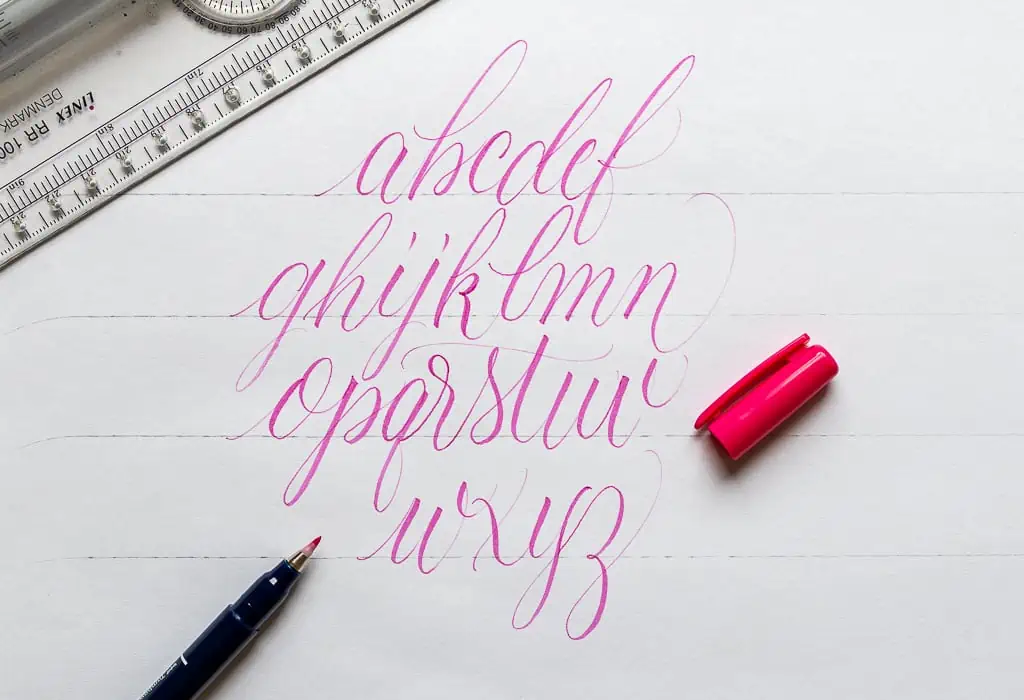 LINEX RR 100
DENMARK
7in
8in
9in
abcdef
ghijklmn
opqrstuv
wxyz